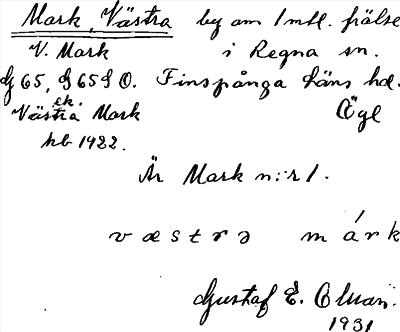 Mark, Västra by om 1 mtl. frälse
V. Mark i Regna sn.
G 65, G 65 S O. Finspånga läns hd.
ek.
Västra Mark Ögl
kb 1922.
Är Mark n:r 1.
væstrə márk
Gustaf E.
1931